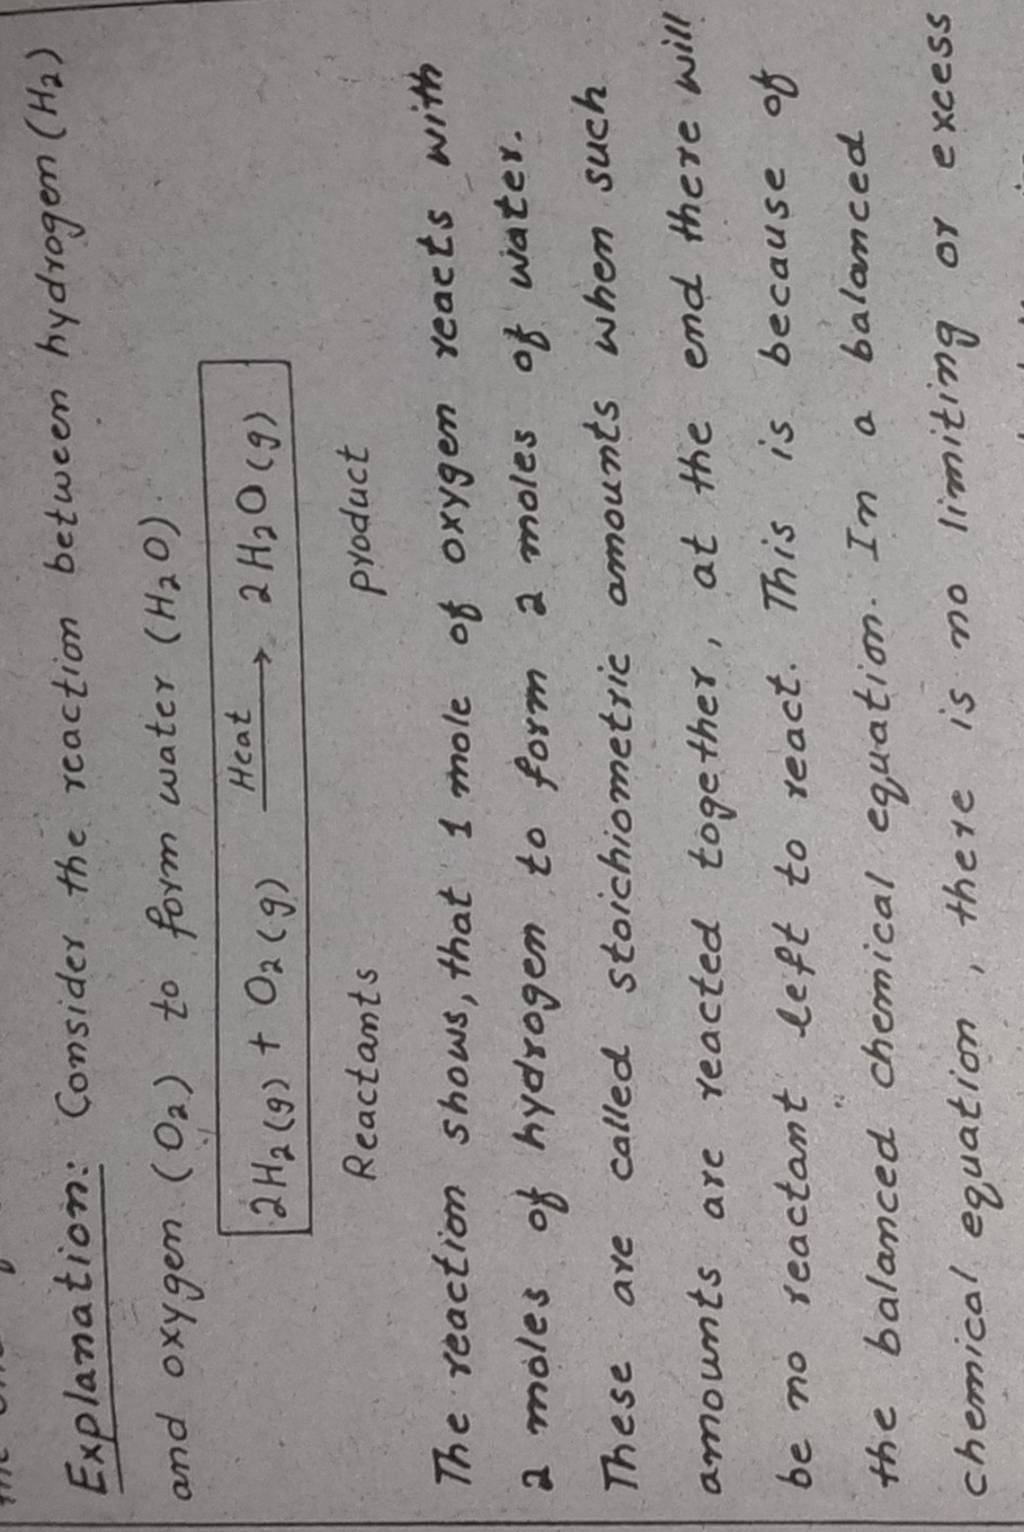 Explanation: Consider the reaction between hydrogen (H₂)
and oxygen (O₂) to form water (H₂O).
2H₂(g) + O₂(g) Heat → 2H₂O(g)
Reactants product
The reaction shows, that 1 mole of oxygen reacts with
2 moles of hydrogen to form 2 moles of water.
These are called stoichiometric amounts when such
amounts are reacted together, at the end there will
be no reactant left to react. This is because of
the balanced chemical equation. In a balanced
chemical equation, there is no limiting or excess